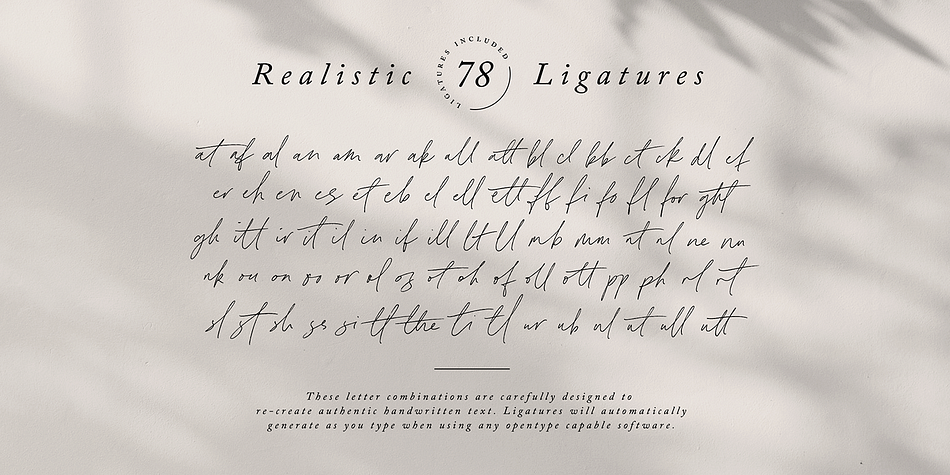 Realistic 78 Ligatures
LIGATURES INCLUDED
at af al an am ar ak all att bl cl bb ct ck dl ef
er eh en es et eb el ell ett ff fi fo fl for ght
gh itt ir it il in if ill lt ll mb mm nt nl ne nn
nk ou on oo or ol os ot oh of oll ott pp ph rl rt
sl st sh ss si tt the ti tl ur ub ul ut ull utt
These letter combinations are carefully designed to
re-create authentic handwritten text. Ligatures will automatically
generate as you type when using any opentype capable software.